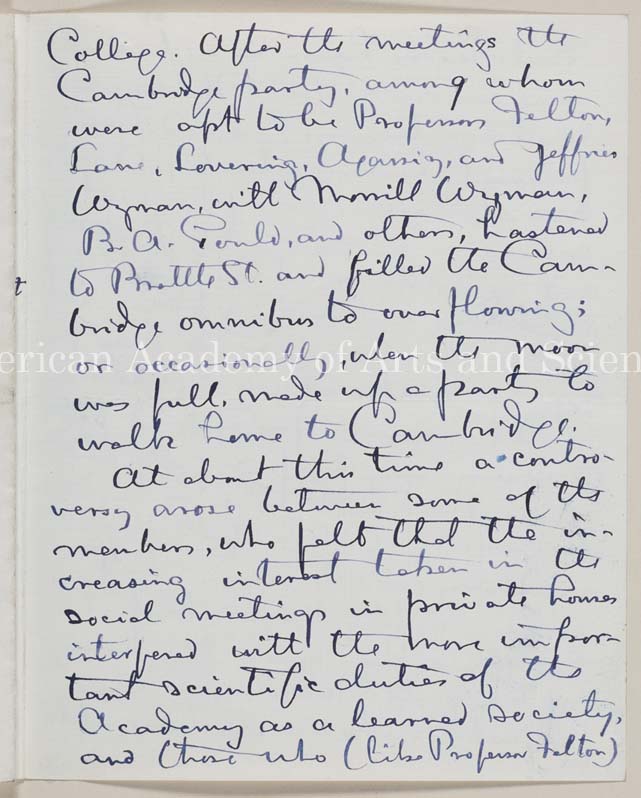 College. After the meetings the
Cambridge party, among whom
were apt to be Professors Felton,
Lane, Lovering, Agassiz, and Jeffries
Wyman, with Morrill Wyman,
B. A. Gould, and others, hastened
to Brattle St. and filled the Cam-
t
bridge omnibus to overflowing;
erican Academy of Arts and Scien
or occasionally, when the moon
was full, made up a party to
walk home to Cambridge.
At about this time a contro-
versy arose between some of the
members, who felt that the in-
creasing interest taken in the
social meetings in private houses
interfered with the more impor-
tant scientific duties of the
Academy as a learned society,
and those who (like Professor Felton)